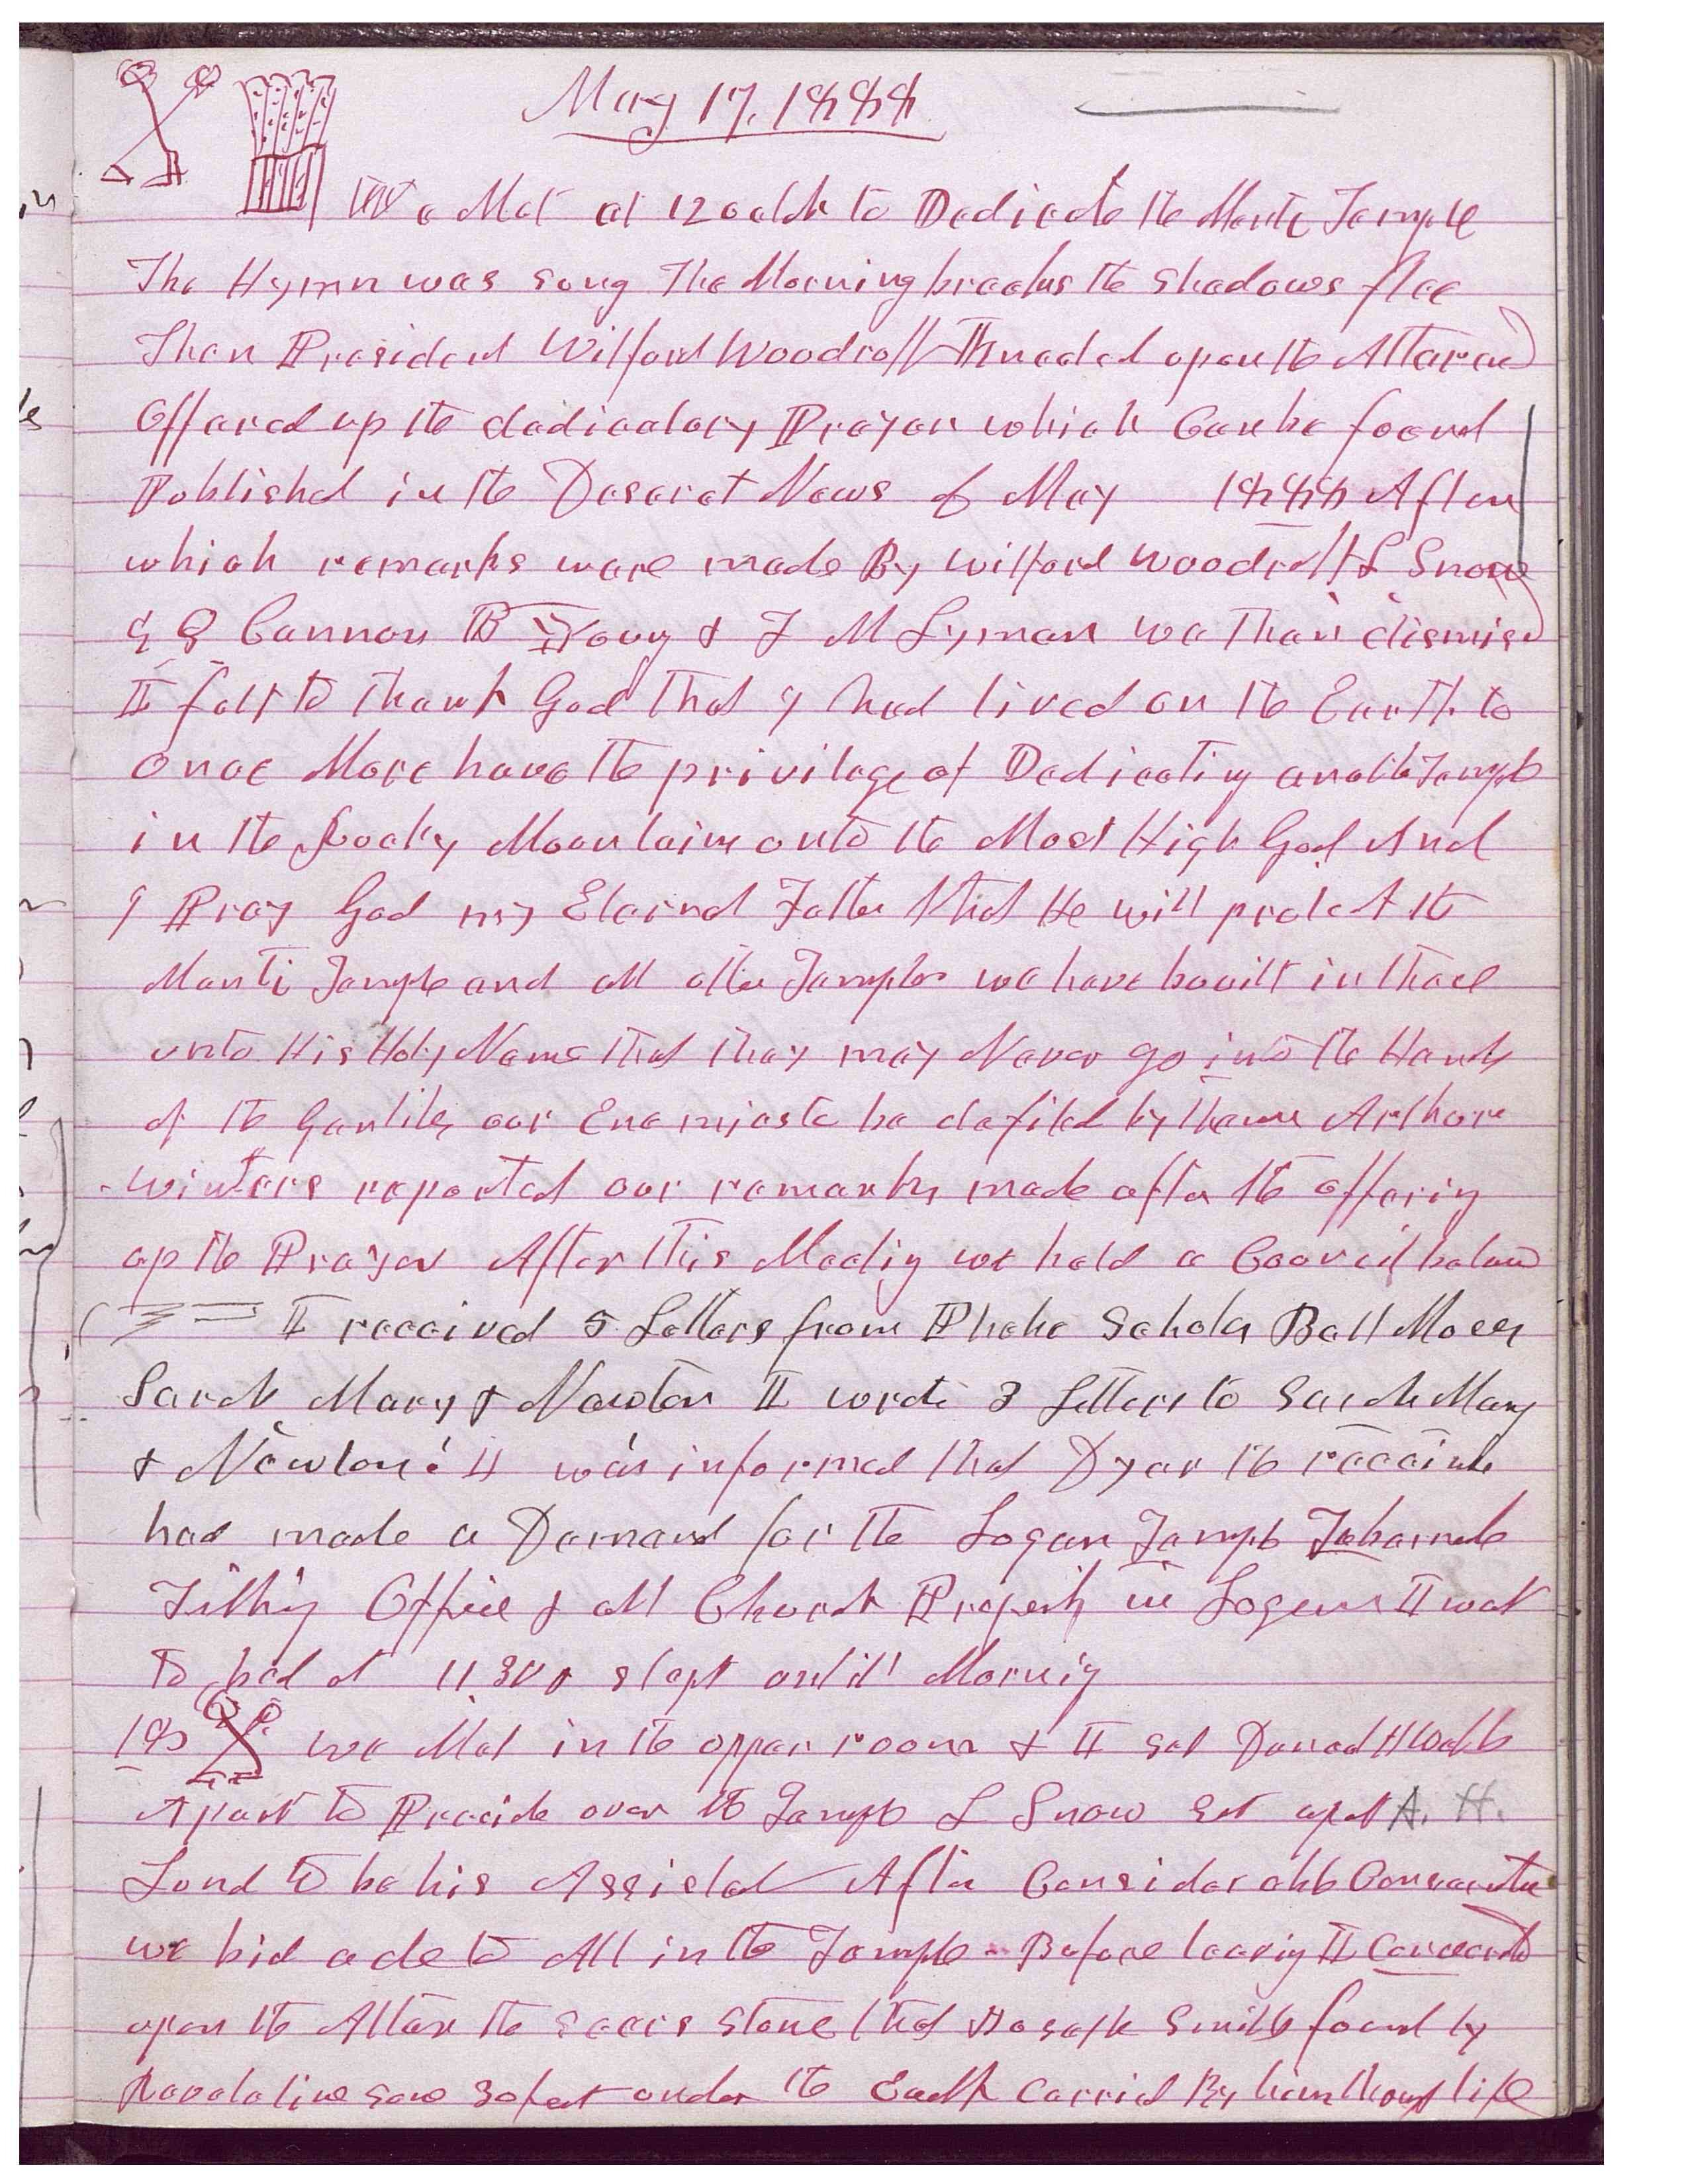 May 17, 1888
We Met at 12 oclok to Dedicate the Manti Temple
The Hymn was sung The Morning breaks the Shadows flee
Then President Wilford Woodruff Kneeded upon the Altar and
Offered up the dedicatory Prayer which Can be found
Published in the Deseret News of May 1888 After
which remarks were made By Wilford Woodruff L Snow
G Q Cannon B Young & F M Lyman we then dismisd
I felt to thank God that I had lived on the Earth to
once More have the privilege of Dedicating another Temple
in the Rocky Mountains unto the Most High God And
I Pray God my Eternal Father that He will protect the
Manti Temple and all other Temples we have buuilt in thee
unto His Holy Name that they may Never go into the Hands
of the Gentiles our Enemies to be defiled by them Arthur
Winters reported our remarks made after the offering
up the Prayer After this Meeting we held a Council
I received 5 Letters from Phebe Bell Moses
Sarah Mary & Newton I wrote 3 Letters to Sarah Mary
& Newton I was informed that Dyer the receiver
had made a Demand for the Logan Temple Tabernacle
Tithing Office & all Church Property in Logan I went
to bed at 11 30 & slept untill Morning
18 we Met in the upper room & I set Daniel H Wells
Apart to Preside over the Temple L Snow set apart A. H.
Lund to be his Assistat After Considerable Consecration
we bid adeto All in the Temple Before leaving I Consecrated
upon the Altar the seers Stone that Joseph Smith found by
Revelation some 30 feet under the Earth Carried By him through life